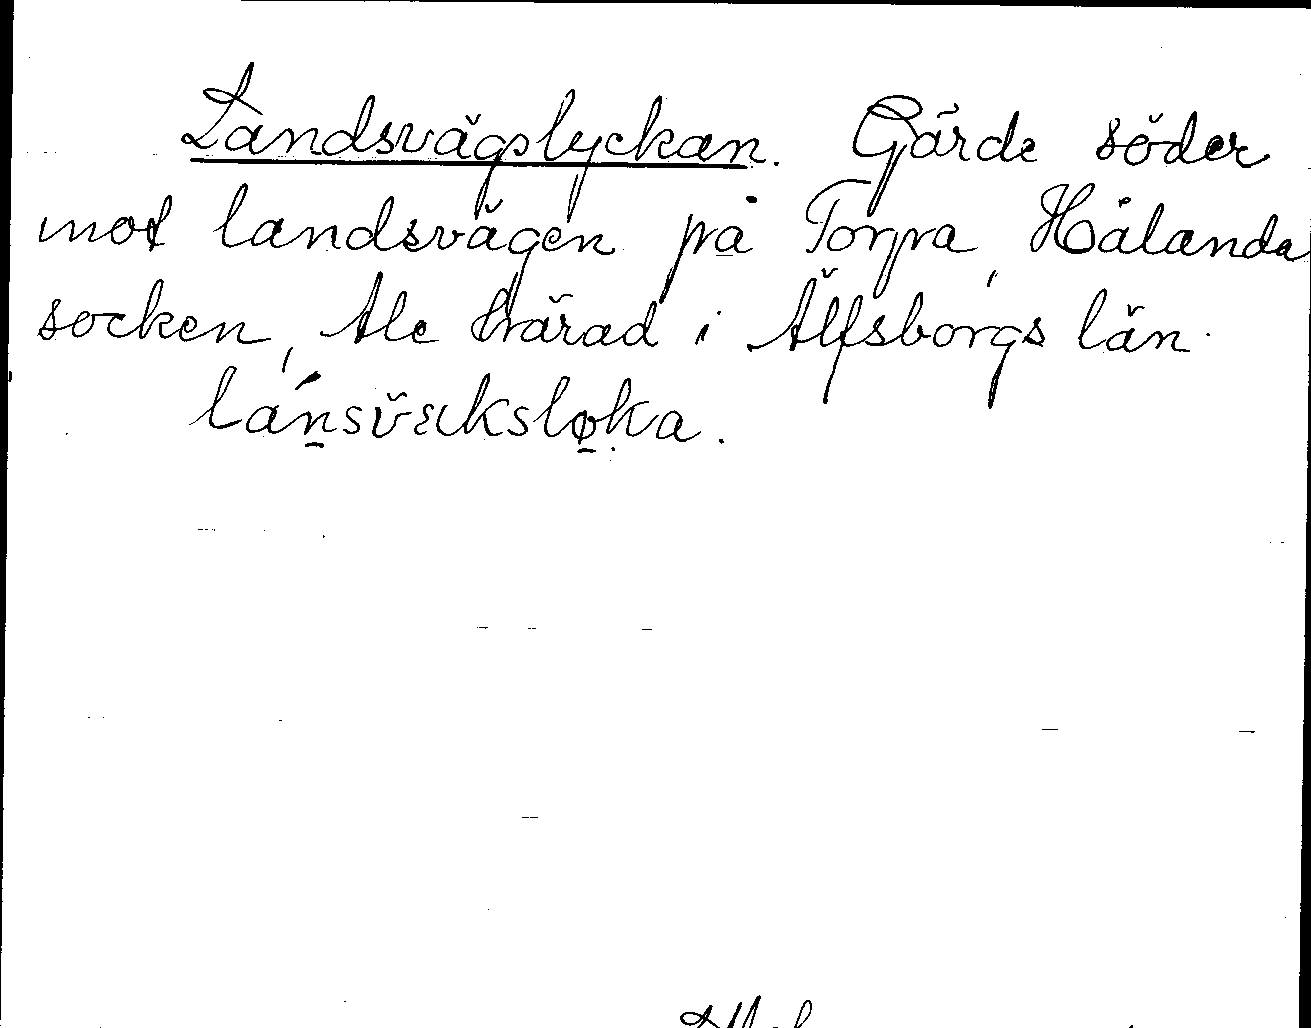 Landsvägslyckan. Gärde söder
mot landsvägen på Torpa, Hålanda
socken, Ale härad i Älfsborgs län.